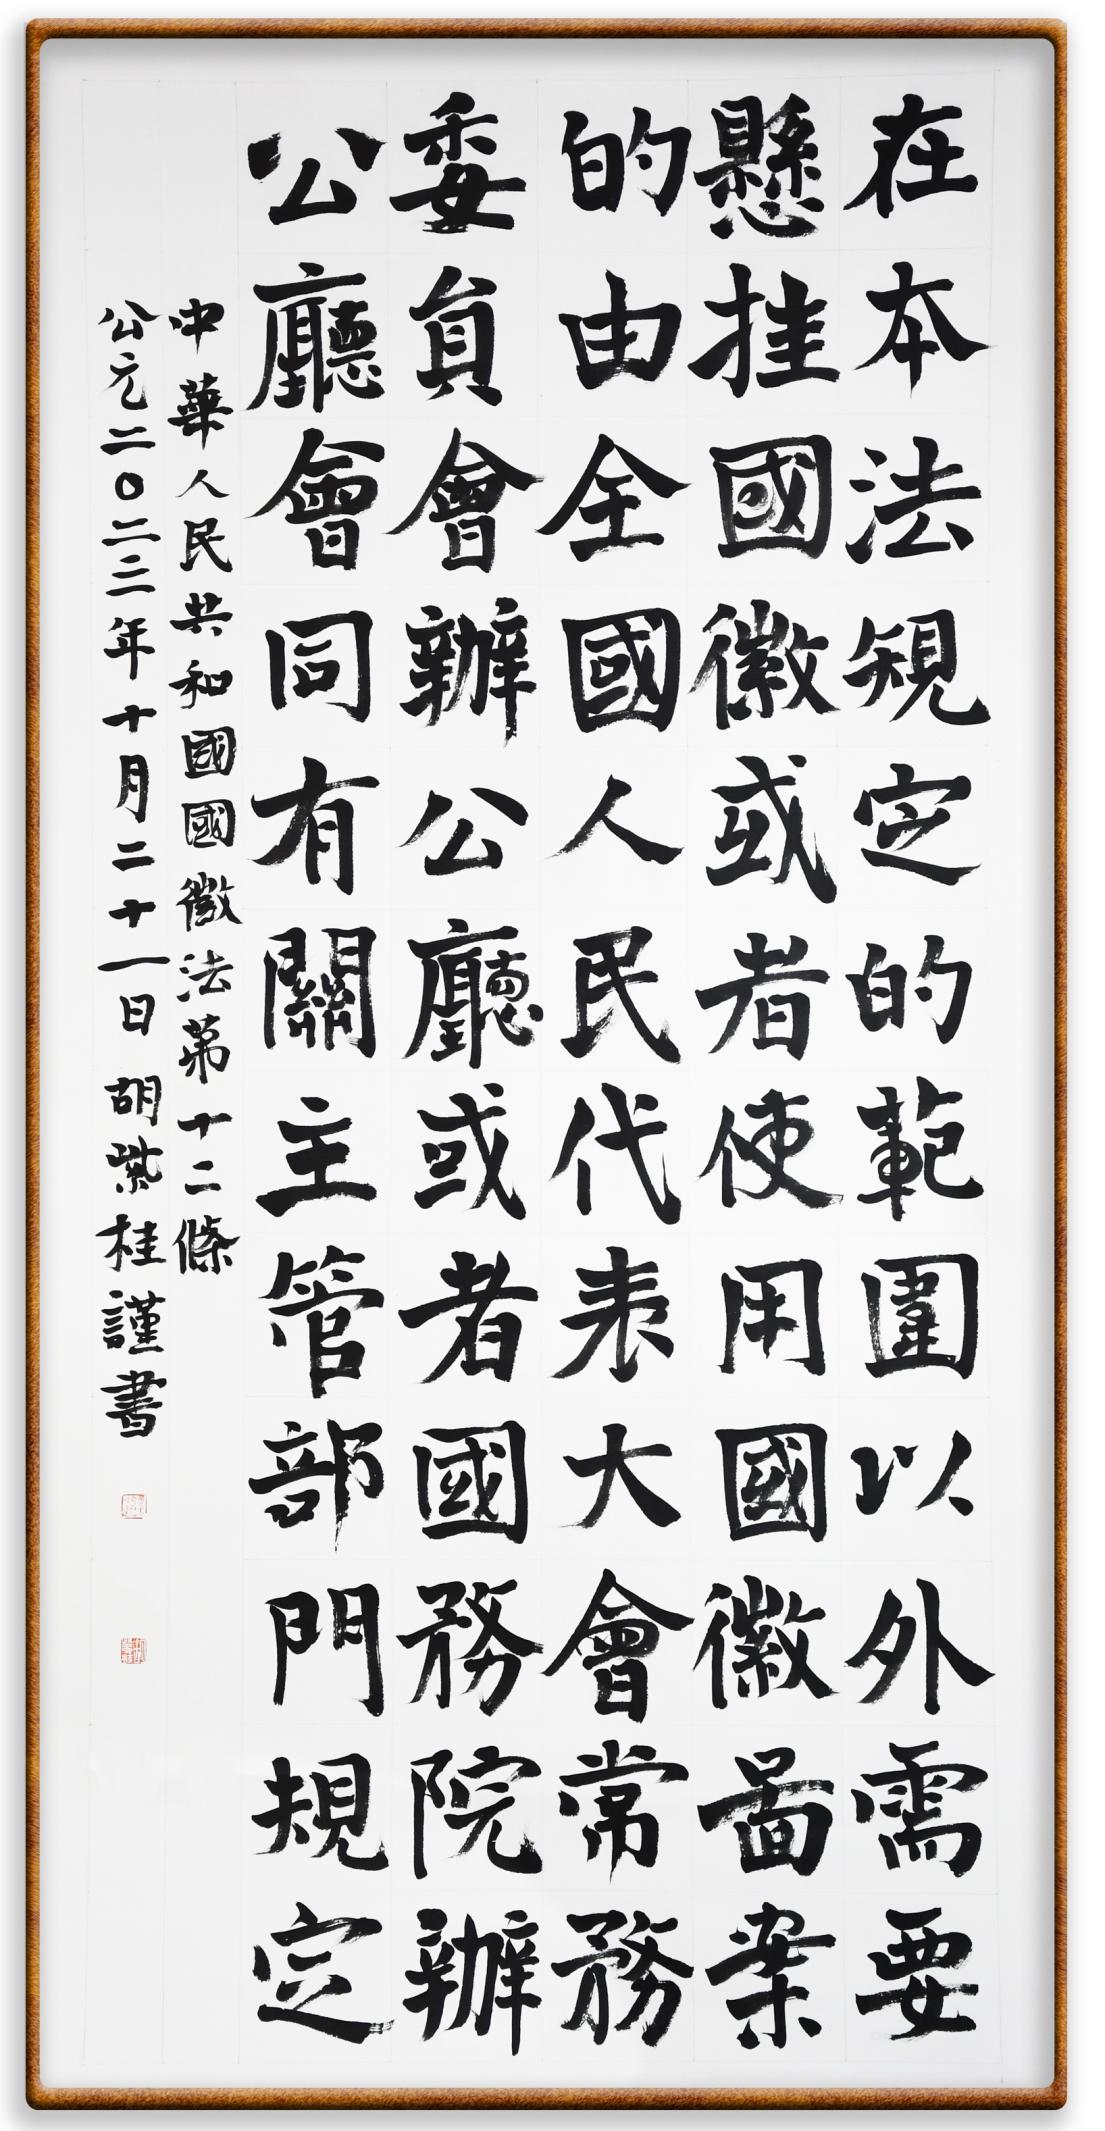 在本法規定的範圍以外需要
懸挂國徽或者使用國徽圖案
的由全國人民代表大會常務
委員會辦公廳或者國務院辦
公廳會同有關主管部門規定
中華人民共和國國徽法第十二條
公元二〇二三年十月二十一日胡紫桂謹書